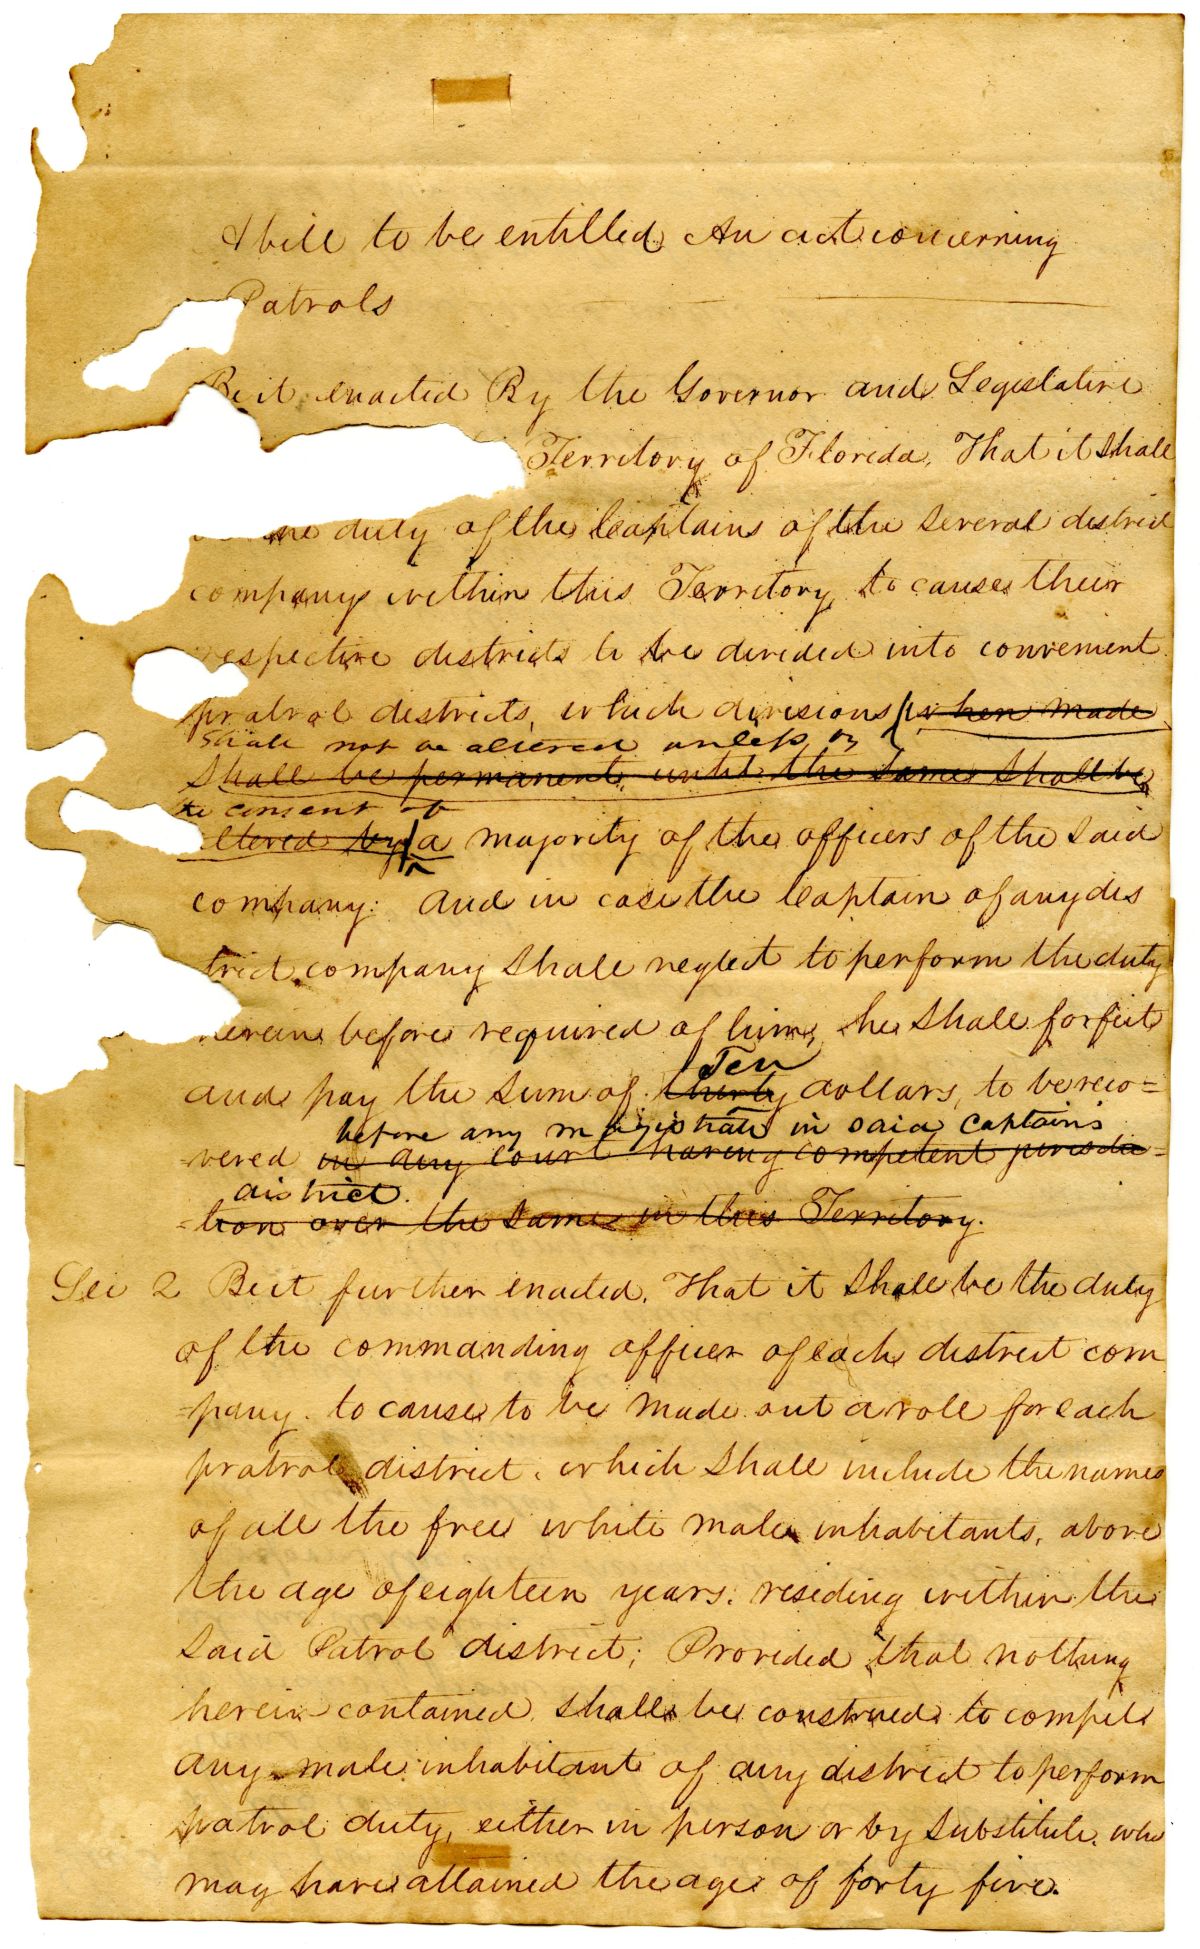 A bill to be entitled An act concerning
Patrols
Be it enacted By the Governor and Legislative
Territory of Florida, That it shall
duty of the Captains of the several district
company within this Territory, to cause their
respective districts to be divided into convenient
pratrol districts, which divisions when made
shall not be altered unless by
shall be permanent, until the same shall be
the consent of
altered by a majority of the officers of the said
company: and in case the Captain of any dis
trict company shall neglect to perform the duty
herein before required of him, he shall forfeit
Ten
and pay the sum of thirty dollars, to be reco=
before any magistrate in said Captains
=vered in any court having competent jurisdic=
district.
=tion over the same in this Territory.
Sec 2 Be it further enacted, That it shall be the duty
of the commanding officer of each district com
=pany to cause to be made out a role for each
pratrol district, which shall include the names
of all the free white male inhabitants, above
the age of eighteen years, residing within the
said Patrol district; Provided that nothing
herein contained shall be construed to compel
any male inhabitant of any district to perform
patrol duty, either in person or by substitute, who
may have attained the age of forty five.